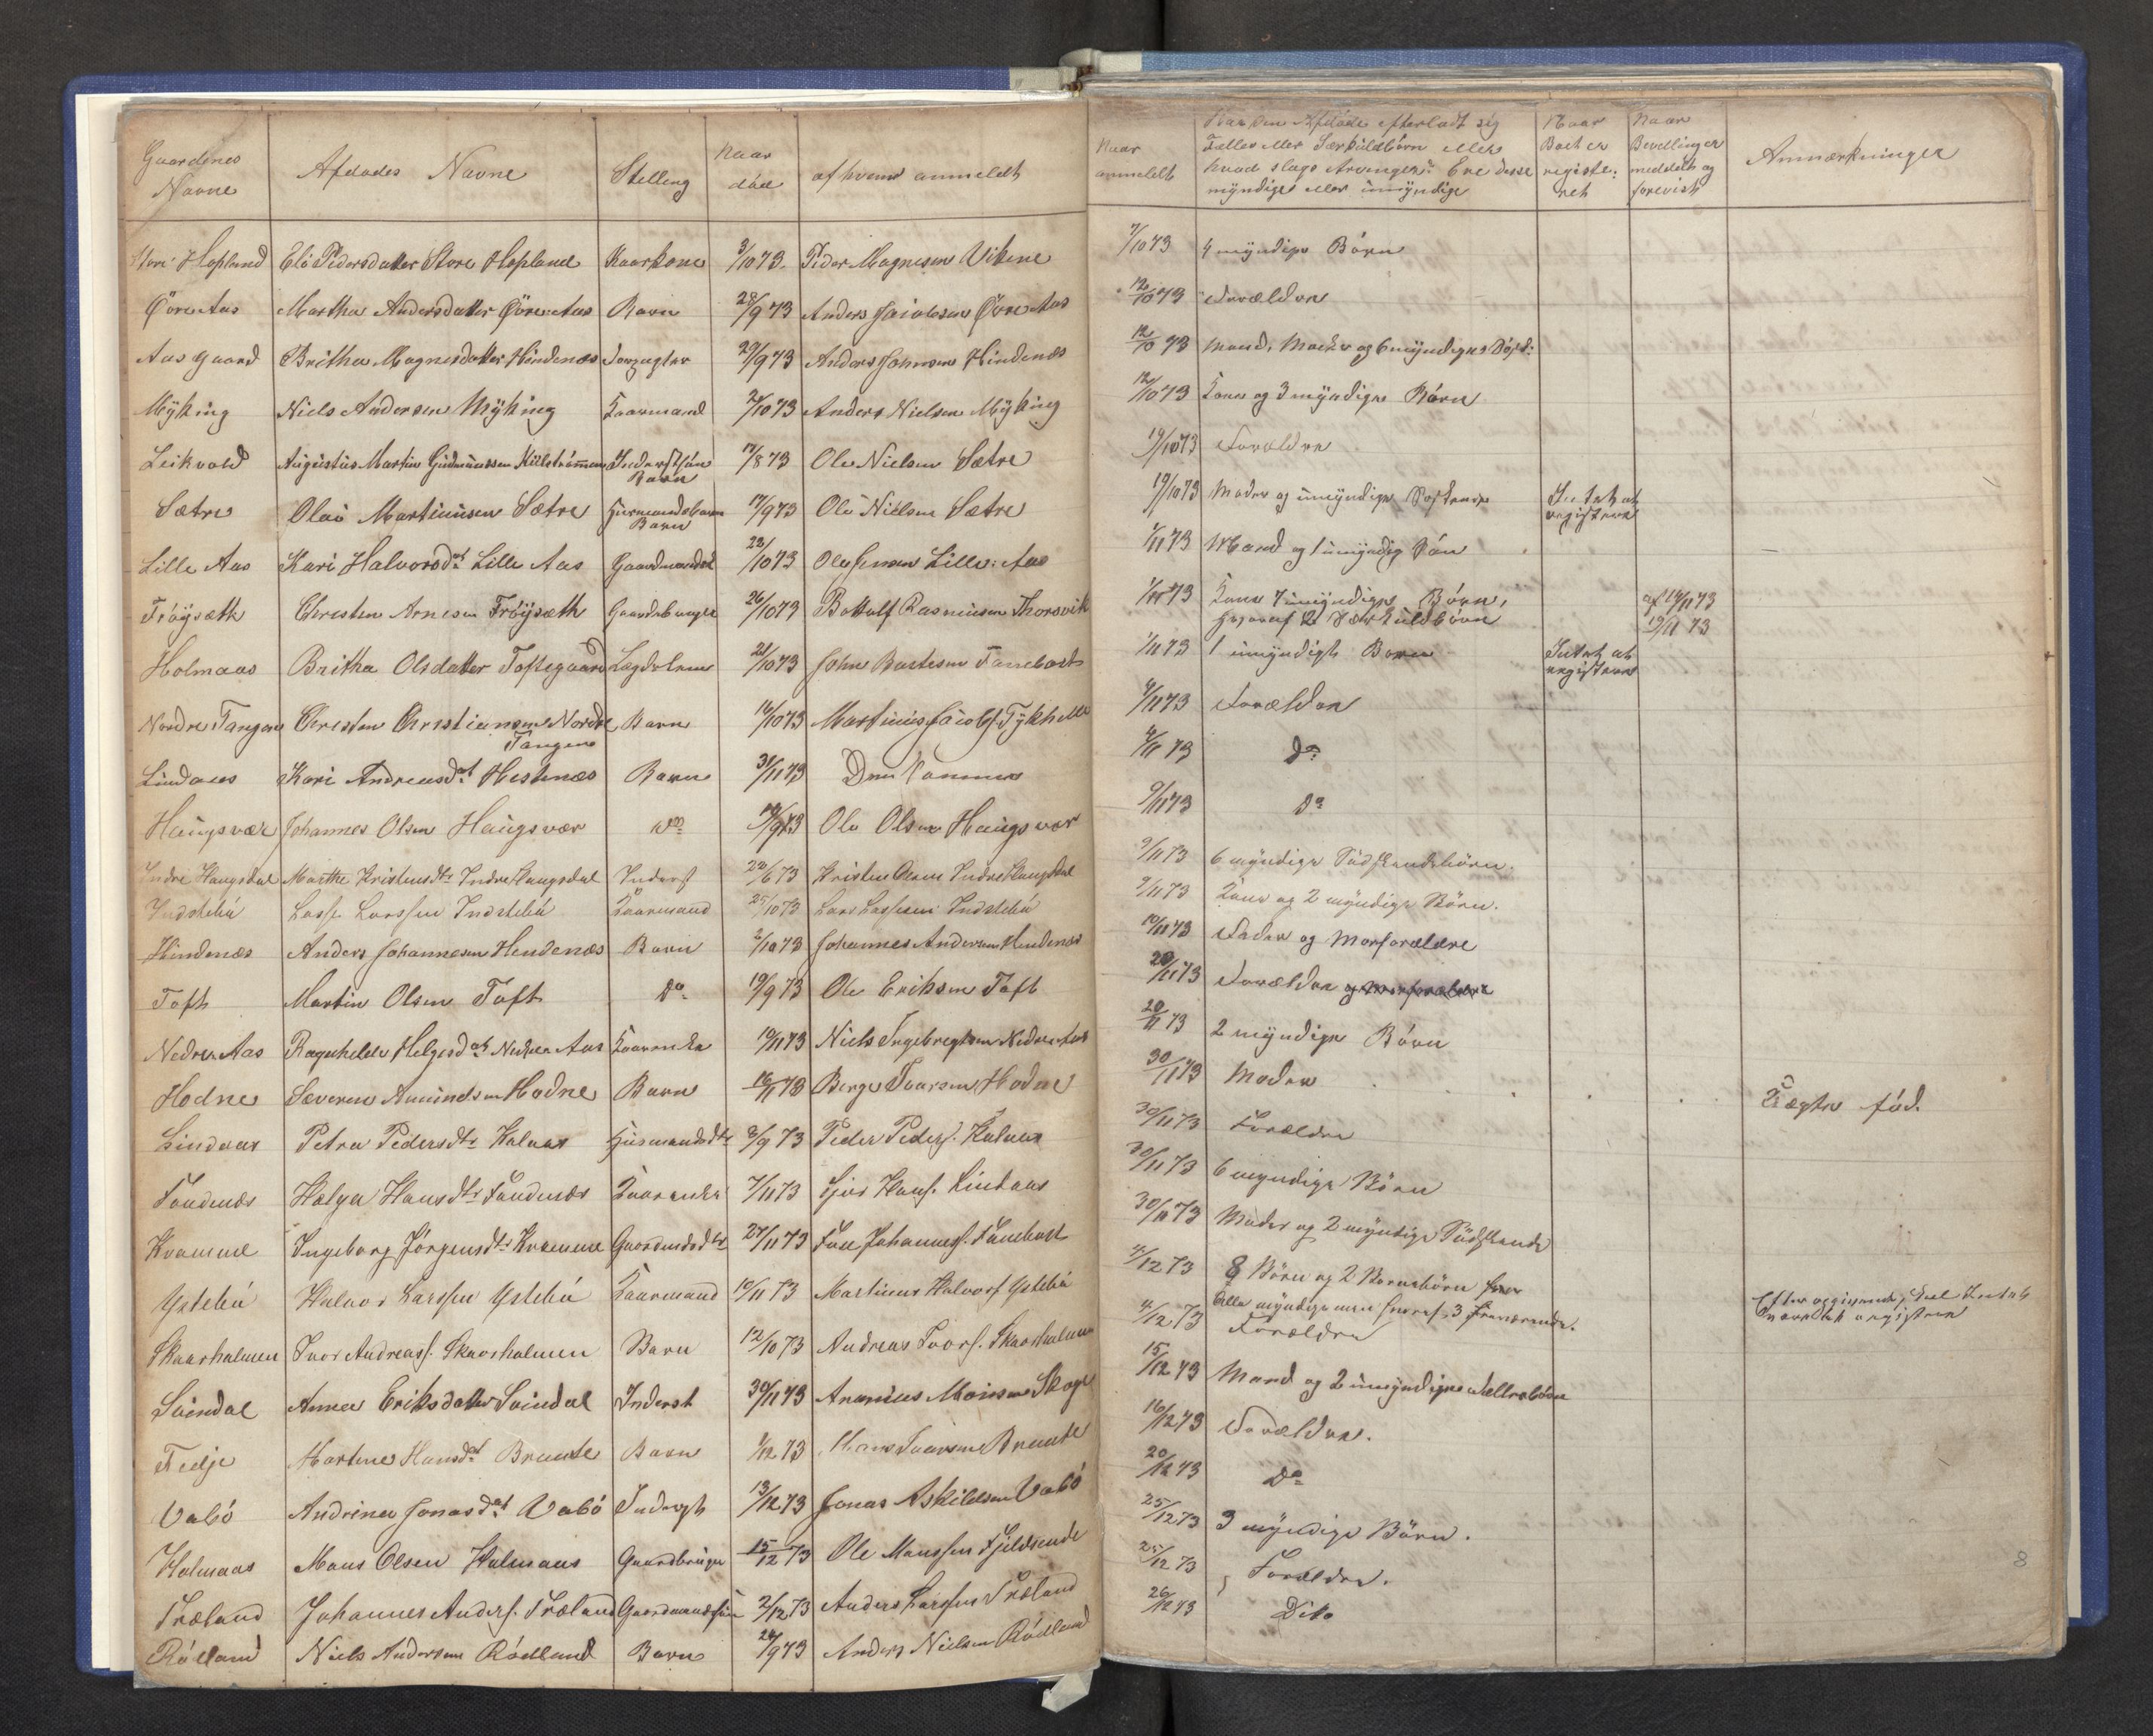 Gaardenes Navne | Afdødes Navne | Stilling | Naar død | af hvem anmeldt | Naar anmeldt | Har den Afdøde efterladt sig Fælles eller Særkuldbørn eller hvad slags Arvinger? Ere disse myndige eller umyndige | Naar Boet er registeret | Naar Bevillinger meddelt og forevist | Anmærkninger
Store Hopland | Eli Pedersdatter Store Hopland | Kaarkone | 3/10 73 | Peder Magnesen Vikene | 7/10 73 | 4 myndige Børn
Øvre Aas | Martha Andersdatter Øvre Aas | Barn | 28/9 73 | Anders Jacobsen Øvre Aas | 12/10 73 | Forældre
Aasgaard | Britha Magnesdatter Hindenæs | | 29/9 73 | Anders Johnsen Hindenæs | 12/10 73 | Mand, Moder og 6 myndige
Myking | Niels Andersen Myking | Kaarmand | 2/10 73 | Anders Nielsen Myking | 12/10 73 | Kone og 3 myndige Børn
Leikvold | Augustus Martin Gudmundsen Kulstrømmen | Inderstsøn Barn | 17/8 73 | Ole Nielsen Sætre | 19/10 73 | Forældre
Sætre | Olai Martinusen Sætre | Husmandsbarn Barn | 17/9 73 | Ole Nielsen Sætre | 19/10 73 | Moder og umyndige Søskende | Intet at registrere
Lille Aas | Kari Halvorsdat Lille Aas | | 22/10 73 | Ole Lille Aas | 1/11 73 | Mand og 1 umyndig Søn
Frøysæth | Christen Arnesen Frøysæth | Gaardbruger | 26/10 73 | Bottolf Rasmusen Thorsvik | 1/11 73 | Kone 7 umyndige Børn, | | af 14/11 73
hvoraf 2 Særkuldbørn | 19/11 73
Holmaas | Britha Olsdatter Toftegaard | Lægdslem | 21/10 73 | John Bastesen Fanebost | 1/11 73 | 1 umyndigt Barn | Intet at registrere
Nordre Tangen | Christen Christiansen Nordre Tangen | Barn | 16/10 73 | Martinus Jacobs. Tykhelle | 4/11 73 | Forældre
Lindaas | Kari Andreasdat Hestenæs | Barn | 31/11 73 | Den samme | 4/11 73 | Do
Haugsvær | Johannes Olsen Haugsvær | do | /9 73 | Ole Olsen Haugsvær | 9/11 73 | Do
Indre Haugsdal | Marthe Kristensdtr Indre Haugsdal | Inderst | 22/6 73 | Kristen Olsen Indre Haugsdal | 9/11 73 | 6 myndige Södskendebørn.
Indstebø | Lasse Larssen Indstebø | Kaarmand | 25/10 73 | Lars Lassesen Indstebø | 9/11 73 | Kone og 2 myndige Börn.
Hindenæs | Anders Johannesen Hindenæs | Barn | 2/10 73 | Johannes Andersen Hindenæs | 10/11 73 | Fader og Morforældre
Toft | Martin Olsen Toft | Do | 19/9 73 | Ole Eriksen Toft | 20/11 73 | Forældre og Morforældre
Nedre Aas | Ragnhilde Helgesdat Nedre Aas | Kaarenke | 10/11 73 | Niels Ingebregtsen Nedre Aas | 20/11 73 | 2 myndige Børn
Hodne | Severen Amundsen Hodne | Barn | 16/11 73 | Berge Ivarsen Hodne | 30/11 73 | Moder | | | Uægte fød.
Lindaas | Petra Pedersdtr Kalaas | Husmandsdtr | 3/9 73 | Peder Peders. Kalaas | 30/11 73 | Forældre
Fondenæs | Helga Hansdtr Fondenæs | Kaarenke | 7/11 73 | Hans. Lindaas | 30/11 73 | 6 myndige Börn
Kvamme | Ingeborg Jørgensdtr Kvamme | Gaardmdsdtr | 27/11 73 | Johanness. Fanebost | 30/11 73 | Moder og 2 myndige Södskende
Ystebø | Halvor Larssen Ystebø | Kaarmand | 10/11 73 | Martinus Halvors. Ystebø | 4/12 73 | 8 Börn og 2 Barnebörn
Alle myndige men hvoraf 3 fraværende. | Efter opgivende skal Intet være at registrere
Skaarholmen | Ivar Andreass. Skaarholmen | Barn | 12/10 73 | Andreas Ivars. Skaarholmen | 4/12 73 | Forældre
Soindal | Anna Eriksdatter Soindal | Inderst | 30/11 73 | Ananias Monsen Skoge | 15/12 73 | Mand og 2 umyndige Fællesbørn
Fedje | Martine Hansdat Bruute | Barn | 1/12 73 | Hans Ivarsen Bruute | 16/12 73 | Forældre.
Vabø | Andrina Jonasdat Vabø | Inderst | 13/12 73 | Jonas Askildsen Vabø | 20/12 73 | Do
Holmaas | Mons Olsen Holmaas | Gaardbruger | 15/12 73 | Ole Monssen Fjeldsende | 25/12 73 | 3 myndige Börn.
Træland | Johannes Anders. Træland | Gaardmandssøn | 2/12 73 | Anders Larssen Træland | 25/12 73 | Forældre.
Rødland | Niels Andersen Rødland | Barn | 24/9 73 | Anders Nielsen Rødland | 26/12 73 | Dito
8